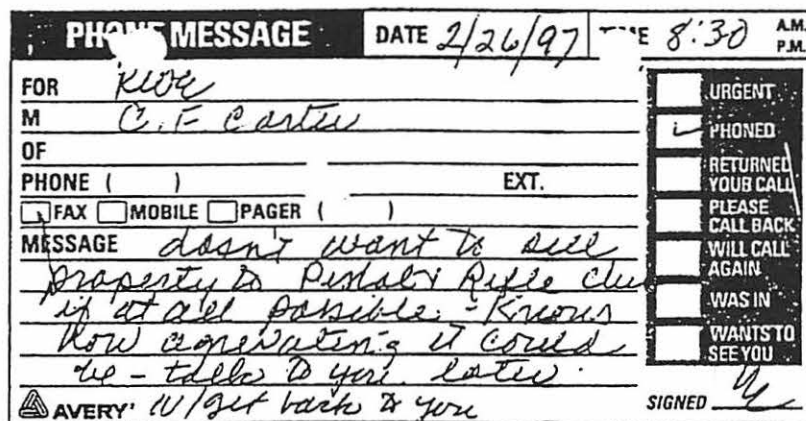 PHONE MESSAGE DATE 2/26/97 TIME 8:30 A.M. P.M.
FOR
M C.F. Carter
OF
PHONE ( ) EXT.
FAX MOBILE PAGER ( )
MESSAGE doesn't want to sell
property to Pistol & Rifle clu
if at all possible. - Knows
how it could
be - talk to you later.
AVERY W/get back to you
URGENT
PHONED
RETURNED YOUR CALL
PLEASE CALL BACK
WILL CALL AGAIN
WAS IN
WANTS TO SEE YOU
SIGNED